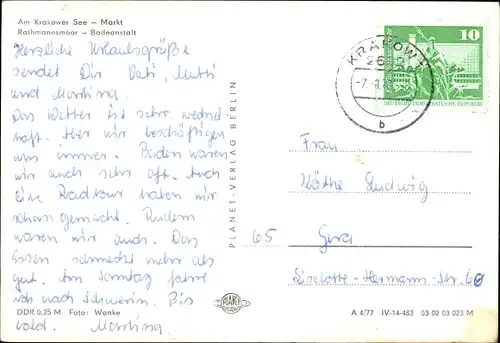 Am Krakower See – Markt
Rathmannsmoor – Badeanstalt
Herzliche Urlaubsgrüße
sendet Dir Vati, Mutti
und Martina.
Das Wetter ist sehr wechsel
haft. Aber wir beschäftigen
uns immer. Baden waren
wir auch sehr oft. Auch
eine Radtour haben wir
schon gemacht. Rudern
waren wir auch. Das
Essen schmeckt mehr als
gut. Am Sonntag fahre
ich nach Schwerin. Bis
bald. Martina
DDR 0,25 M Foto: Wanke
PLANET-VERLAG BERLIN
PLANET
KRAKOW
b
10
DEUTSCHE DEMOKRATISCHE REPUBLIK
Frau
Käthe Ludwig
65 Gera
Liselotte-Hermann-Str. 60
A 4/77 IV-14-483 03 02 03 023 M